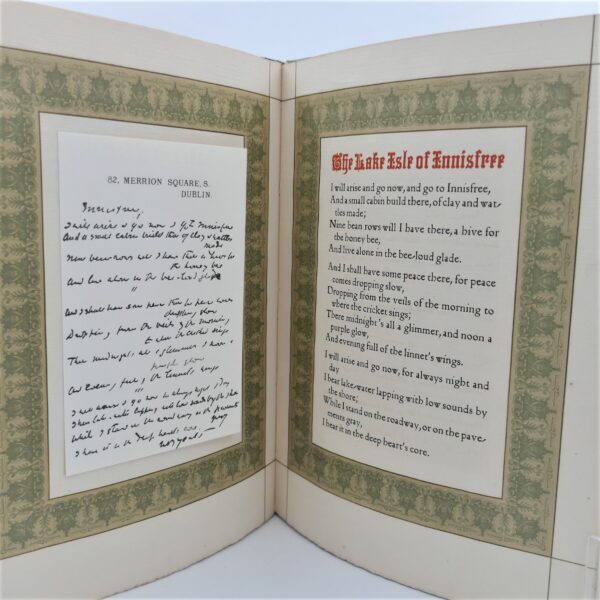 82, MERRION SQUARE, S.
DUBLIN.
Innisfree,
I will arise & go now & go to Innisfree
And a small cabin build there of clay & wattles
made
Nine bean rows will I have there a hive for
the honey bee
And live alone in the bee-loud glade
"
And I shall have some peace there for peace comes
dropping slow
Dropping from the veils of the morning
to where the cricket sings
There midnights all a glimmer & noon a
purple glow
And evening full of the linnets wings
"
I will arise & go now for always night & day
I hear lake water lapping with low sounds by the shore
While I stand on the roadway or on the pavements
gray
I hear it in the deep hearts core
WB Yeats
The Lake Isle of Innisfree
I will arise and go now, and go to Innisfree,
And a small cabin build there, of clay and wat-
tles made;
Nine bean rows will I have there, a hive for
the honey bee,
And live alone in the bee-loud glade.
And I shall have some peace there, for peace
comes dropping slow,
Dropping from the veils of the morning to
where the cricket sings;
There midnight's all a glimmer, and noon a
purple glow,
And evening full of the linnet's wings.
I will arise and go now, for always night and
day
I hear lake water lapping with low sounds by
the shore;
While I stand on the roadway, or on the pave-
ments gray,
I hear it in the deep heart's core.